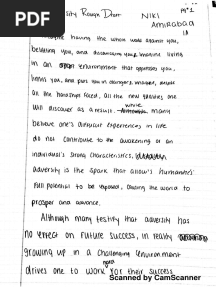 PDF
Rough Draft
NIKI
AMIRABAD
having the whole world against you,
believing you, and discouraging you. Imagine living
in an environment that oppresses you,
harms you, and puts you in danger. Imagine,
all the hardships faced, all the new qualities one
will discover as a result. while many
believe one's difficult experiences in life
do not contribute to the awakening of an
individual's strong characteristics,
adversity is the spark that allows humanities'
full potential to be exposed, allowing the world to
prosper and advance.
Although many testify that adversity has
no effect on future success, in reality
growing up in a challenging environment
drives one to work for their success.
Scanned by CamScanner